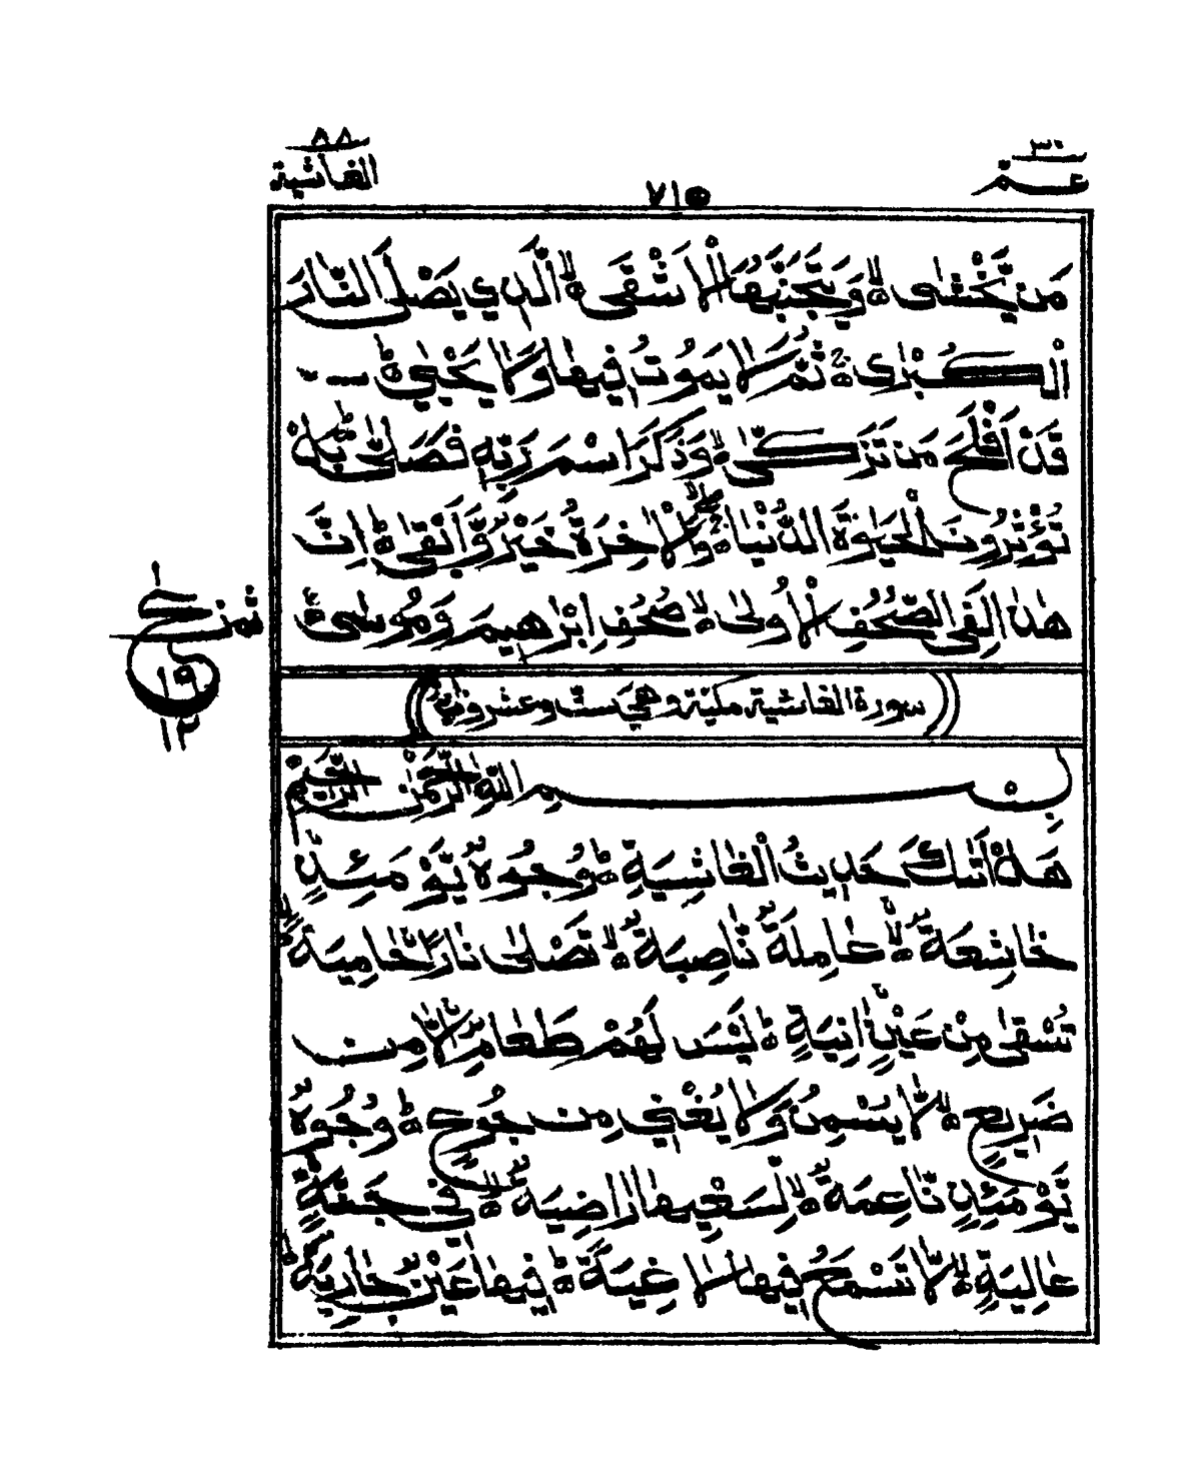 ٣٠ عـمّ
٧١٥
٨٨ الغاشية
مَنْ يَّخْشٰى ۙ وَيَتَجَنَّبُهَا الْاَشْقَى ۙ الَّذِي يَصْلَى النَّارَ
الْكُبْرٰى ۚ ثُمَّ لَا يَمُوْتُ فِيهَا وَلَا يَحْيٰى ؕ
قَدْ اَفْلَحَ مَنْ تَزَكّٰى ۙ وَذَكَرَ اسْمَ رَبِّهٖ فَصَلّٰى ؕ بَلْ
تُؤْثِرُوْنَ الْحَيٰوةَ الدُّنْيَا ۚ وَالْاٰخِرَةُ خَيْرٌ وَّاَبْقٰى ؕ اِنَّ
هٰذَا لَفِي الصُّحُفِ الْاُولٰى ۙ صُحُفِ اِبْرٰهِيمَ وَمُوْسٰى
سورة الغاشية مكيّة وهي ستّ وعشرون اٰية
بِسْمِ اللّٰهِ الرَّحْمٰنِ الرَّحِيْمِ
هَلْ اَتٰىكَ حَدِيثُ الْغَاشِيَةِ ؕ وُجُوْهٌ يَّوْمَئِذٍ
خَاشِعَةٌ ۙ عَامِلَةٌ نَّاصِبَةٌ ۙ تَصْلٰى نَارًا حَامِيَةً
تُسْقٰى مِنْ عَيْنٍ اٰنِيَةٍ ؕ لَيْسَ لَهُمْ طَعَامٌ اِلَّا مِنْ
ضَرِيعٍ ۙ لَّا يُسْمِنُ وَلَا يُغْنِي مِنْ جُوْعٍ ؕ وُجُوْهٌ
يَّوْمَئِذٍ نَّاعِمَةٌ ۙ لِّسَعْيِهَا رَاضِيَةٌ ۙ فِي جَنَّةٍ
عَالِيَةٍ ۙ لَّا تَسْمَعُ فِيهَا لَاغِيَةً ؕ فِيهَا عَيْنٌ جَارِيَةٌ
١٩
١٢